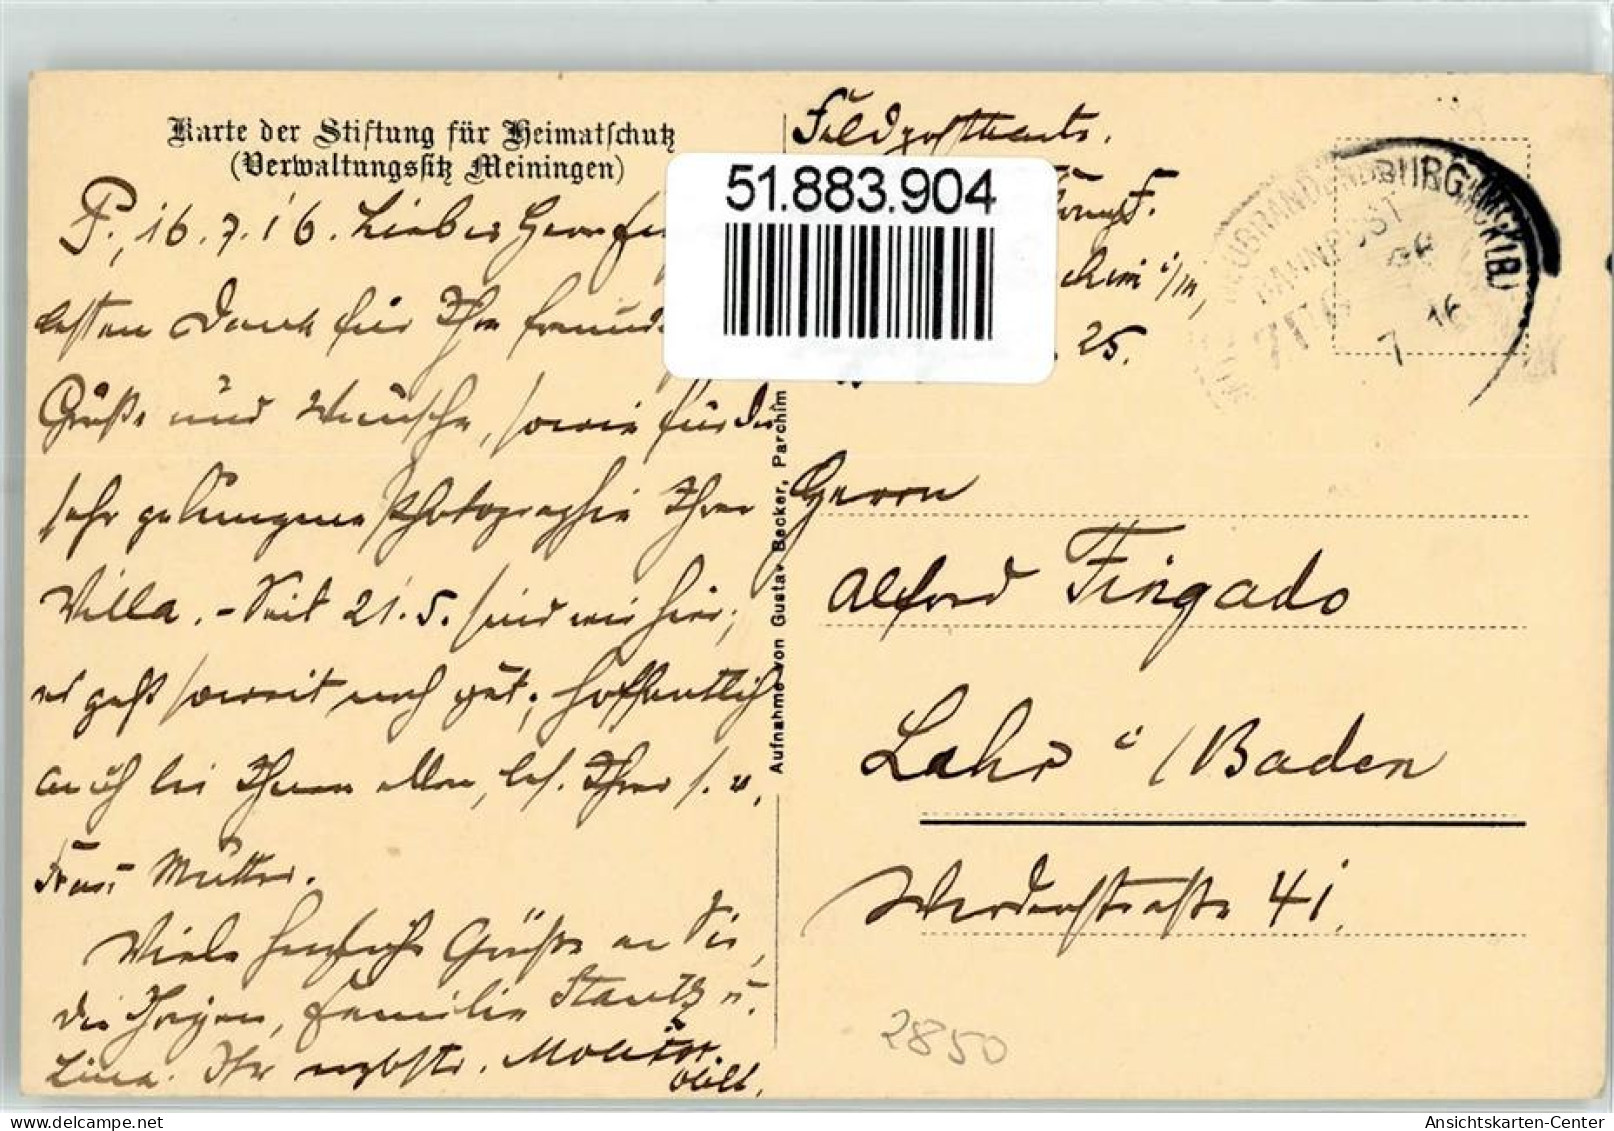 Karte der Stiftung für Heimatschutz
(Verwaltungssitz Meiningen)
P., 16.7.16. Lieber Herr
besten Dank für Ihre freund
Grüße und Wünsche, sowie für die
sehr gelungene Photographie Ihrer
Villa. – Seit 21.5. sind wir hier;
es geht soweit noch gut; hoffentlich
auch bei Ihnen allen, bes. Ihrer s. v.
Frau Mutter.
Viele herzliche Grüße an Sie,
die Ihrigen, Familie Stantz u.
Lina. Ihr ergebenster Molitor
Aufnahme von Gustav Becker, Parchim
Feldpostkarte.
51.883.904
i/M,
25.
NEUBRANDENBURG (MECKLB)
BAHNPOST
ZUG
7 16
Herrn
Alfred Fingado
Lahr i/Baden
Werderstraße 41.
2850
Ansichtskarten-Center